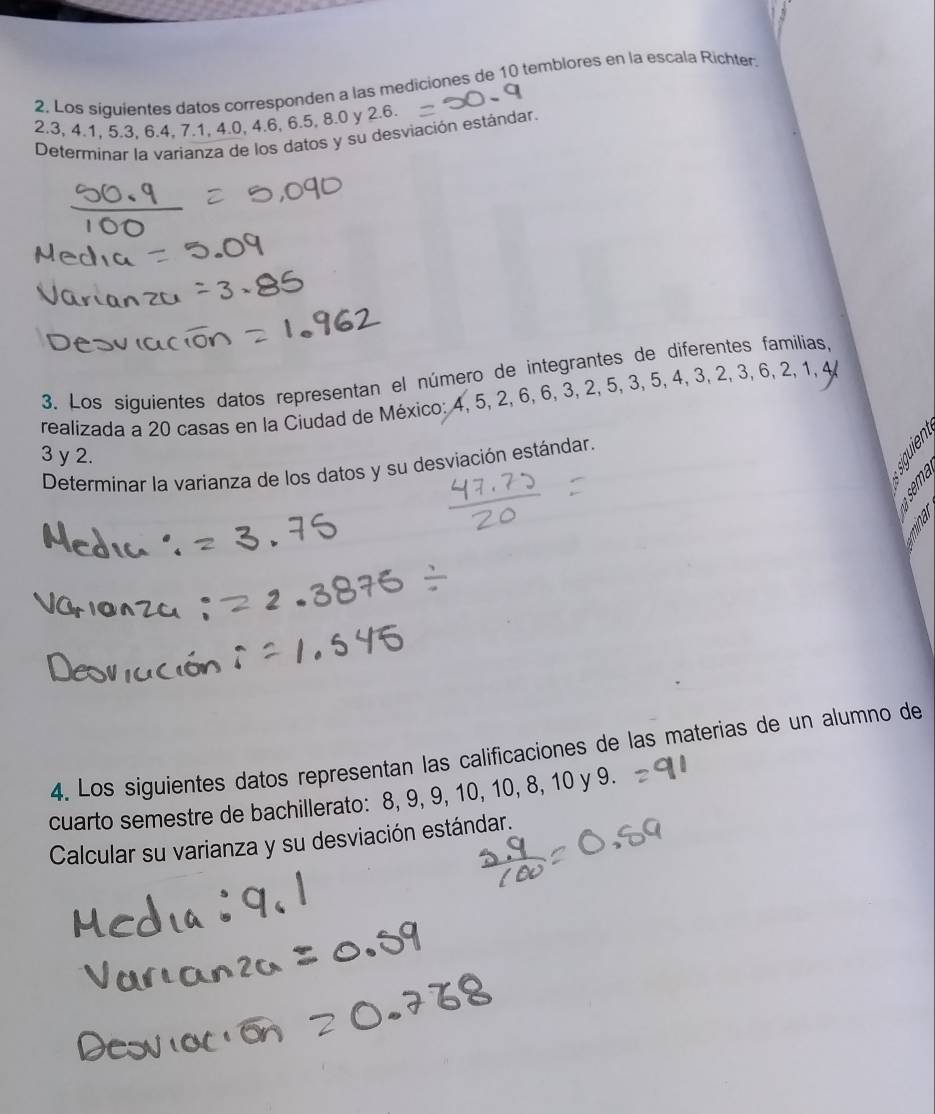 2. Los siguientes datos corresponden a las mediciones de 10 temblores en la escala Richter:
2.3, 4.1, 5.3, 6.4, 7.1, 4.0, 4.6, 6.5, 8.0 y 2.6. = 50.9
Determinar la varianza de los datos y su desviación estándar.
50.9 / 100 = 5,090
Media = 5.09
Varianza = 3.85
Desviación = 1.962
3. Los siguientes datos representan el número de integrantes de diferentes familias,
realizada a 20 casas en la Ciudad de México: 4, 5, 2, 6, 6, 3, 2, 5, 3, 5, 4, 3, 2, 3, 6, 2, 1, 4,
3 y 2.
Determinar la varianza de los datos y su desviación estándar.
47.75 / 20 =
Media : = 3.75
Varianza : = 2.3875 ÷
Desviación : = 1.545
s siguiente
na seman
minar
4. Los siguientes datos representan las calificaciones de las materias de un alumno de
cuarto semestre de bachillerato: 8, 9, 9, 10, 10, 8, 10 y 9. = 91
Calcular su varianza y su desviación estándar.
5.9 / 100 = 0.59
Media : 9.1
Varianza = 0.59
Desviación = 0.768